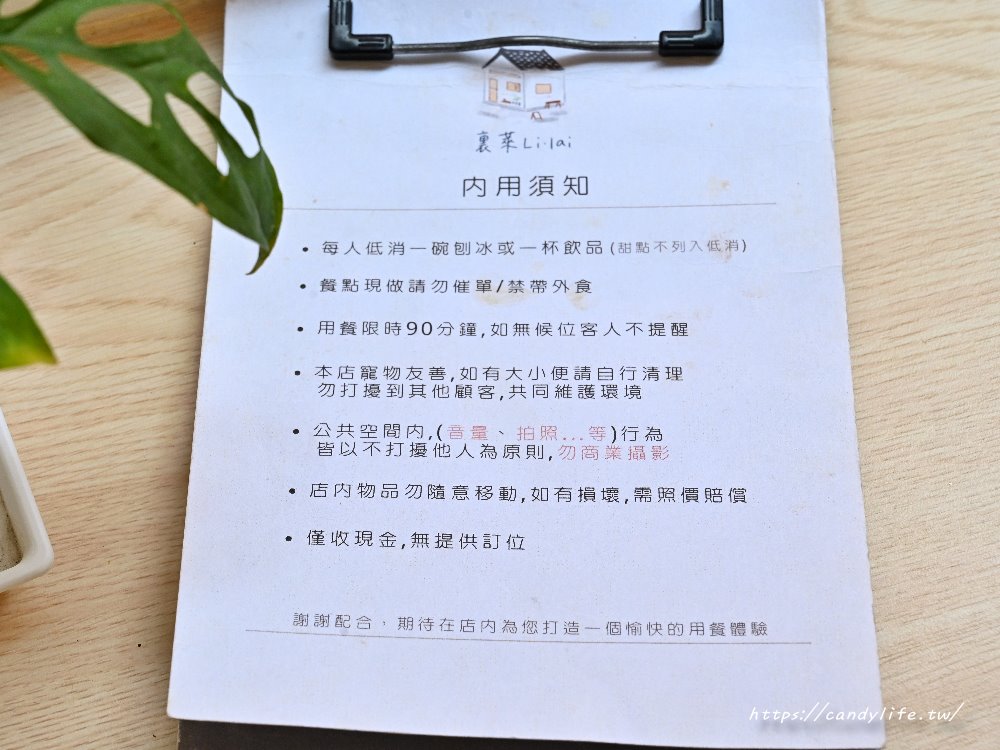 裏萊Li.lai
內用須知
• 每人低消一碗刨冰或一杯飲品(甜點不列入低消)
• 餐點現做請勿催單/禁帶外食
• 用餐限時90分鐘,如無候位客人不提醒
• 本店寵物友善,如有大小便請自行清理
勿打擾到其他顧客,共同維護環境
• 公共空間內,(音量、拍照...等)行為
皆以不打擾他人為原則,勿商業攝影
• 店內物品勿隨意移動,如有損壞,需照價賠償
• 僅收現金,無提供訂位
謝謝配合,期待在店內為您打造一個愉快的用餐體驗
https://candylife.tw/